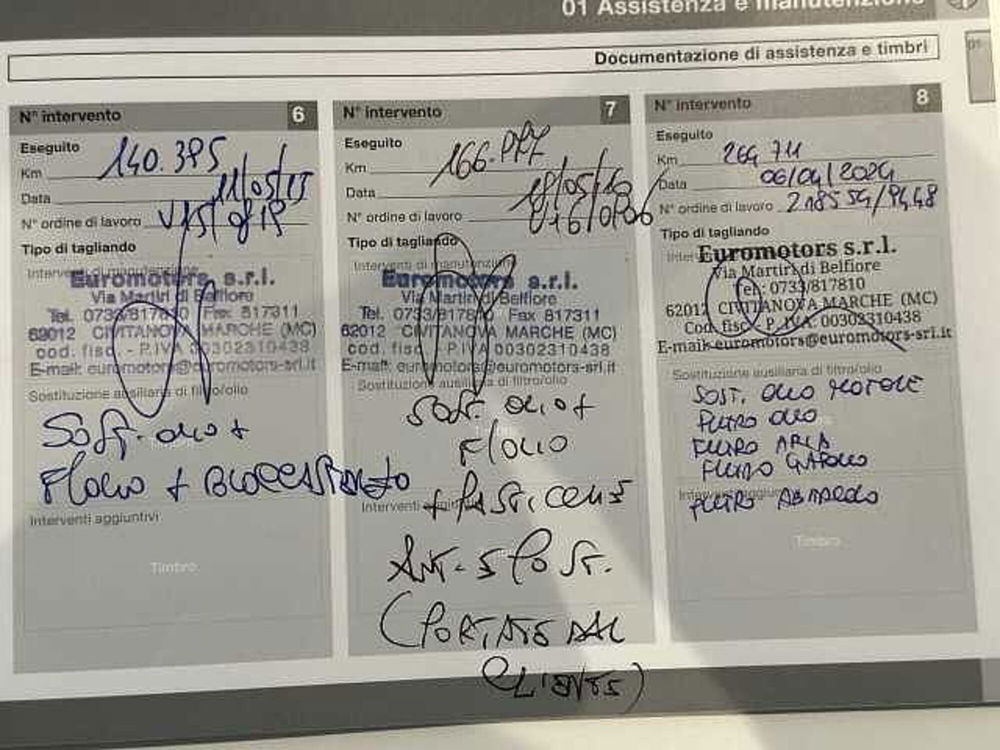 01 Assistenza e manutenzione
01
Documentazione di assistenza e timbri
N° intervento 6
Eseguito
Km 140.395
Data 11/05/15
N° ordine di lavoro V15/
Tipo di tagliando
Interventi di manutenzione
Euromotors s.r.l.
Via Martiri di Belfiore
Tel. 0733/817810 Fax 817311
62012 CIVITANOVA MARCHE (MC)
cod. fisc. - P.IVA 00302310438
E-mail: euromotors@euromotors-srl.it
Sostituzione ausiliaria di filtro/olio
SOST. OLIO +
F/OLIO +
Interventi aggiuntivi
Timbro
N° intervento 7
Eseguito
Km 166.
Data 18/05/16
N° ordine di lavoro V16/
Tipo di tagliando
Interventi di manutenzione
Euromotors s.r.l.
Via Martiri di Belfiore
Tel. 0733/817810 Fax 817311
62012 CIVITANOVA MARCHE (MC)
cod. fisc. - P.IVA 00302310438
E-mail: euromotors@euromotors-srl.it
Sostituzione ausiliaria di filtro/olio
SOST. OLIO +
F/OLIO
+ PASTICCHE
Interventi aggiuntivi
ANT. E POST.
(PORTATE DAL
CLIENTE)
N° intervento 8
Eseguito
Km 264 711
Data 06/04/2024
N° ordine di lavoro 218554/9448
Tipo di tagliando
Euromotors s.r.l.
Via Martiri di Belfiore
Tel: 0733/817810
62012 CIVITANOVA MARCHE (MC)
Cod. fisc. P. IVA: 00302310438
E-mail: euromotors@euromotors-srl.it
Sostituzione ausiliaria di filtro/olio
SOST. OLIO MOTORE
FILTRO OLIO
FILTRO ARIA
FILTRO GASOLIO
Interventi aggiuntivi
FILTRO ABITACOLO
Timbro